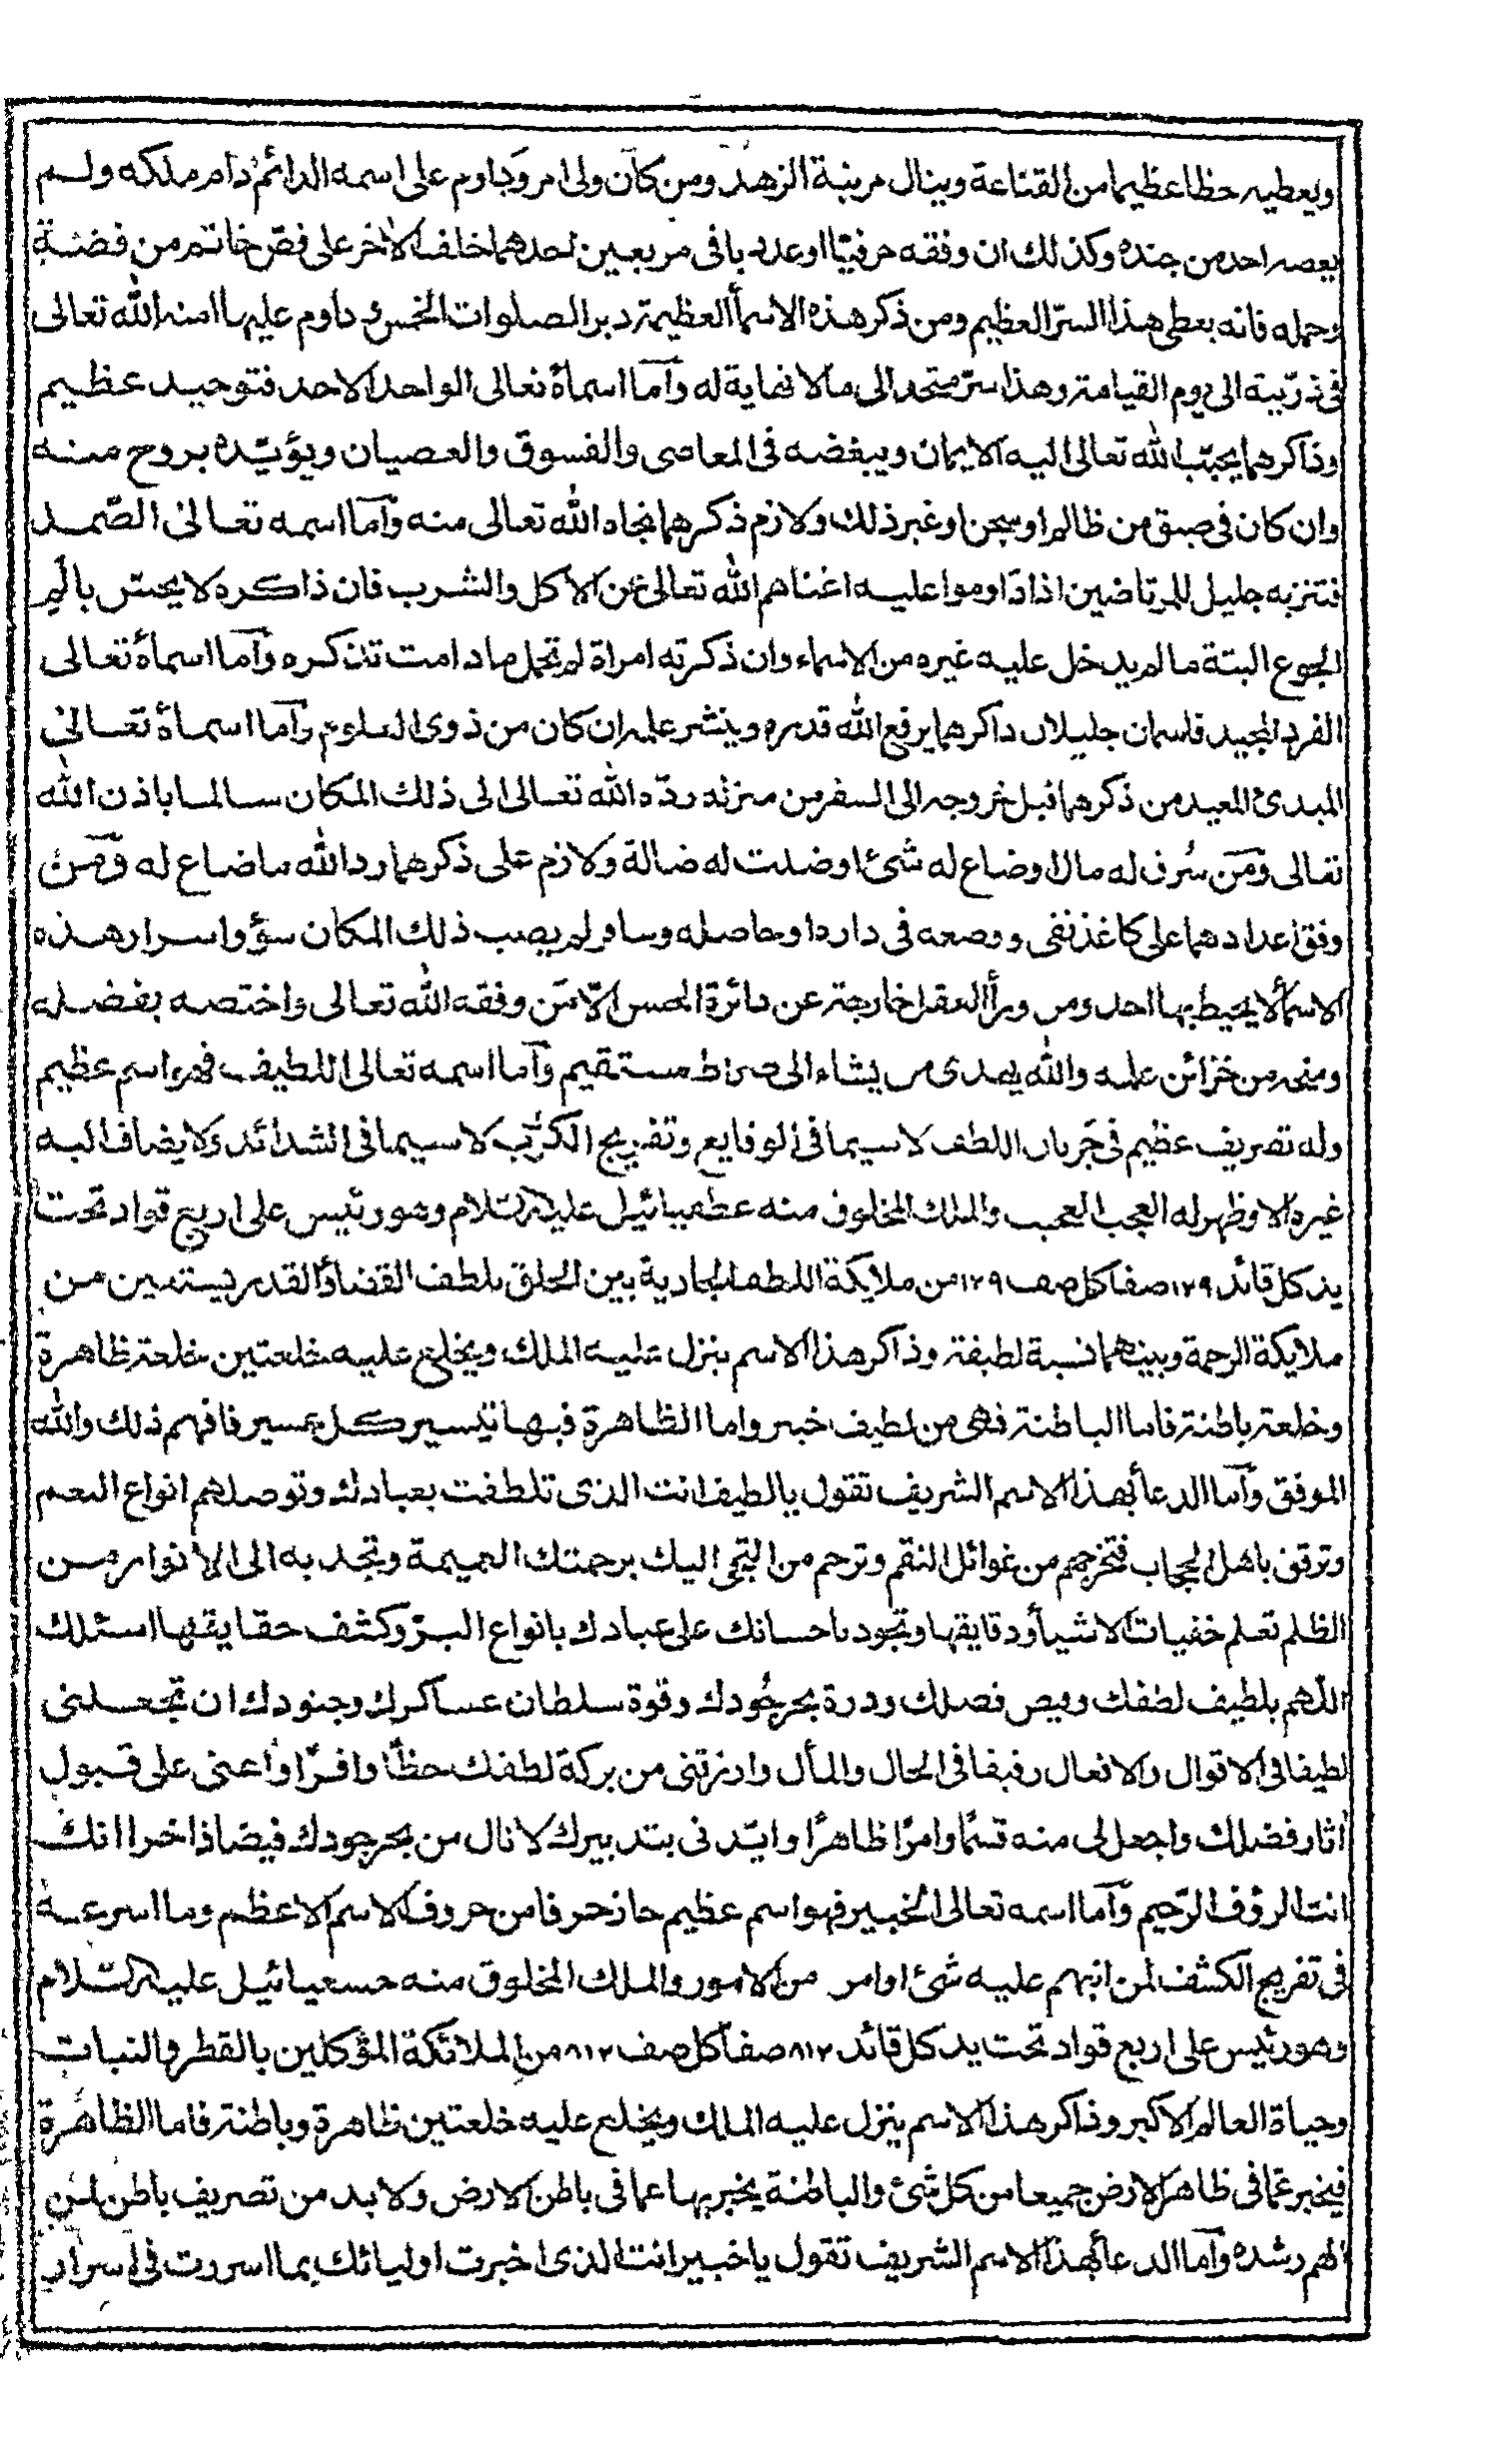 ويعطيه حظا عظيما من القناعة وينال مرتبة الزهد ومن كان ولى امر وداوم على اسمه الدائم دام ملكه ولم
يعصه احد من جنده وكذلك ان وفقه حرفيا او عدديا فى مربعين احدهما خلف الاخر على فص خاتم من فضة
وحمله فانه يعطى هذا السر العظيم ومن ذكر هذه الاسمأ العظيمة دبر الصلوات الخمس وداوم عليها امنه الله تعالى
فى ذرّيته الى يوم القيامة وهذا سرّ متحد الى مالا نهاية له وآما اسمأه تعالى الواحد الاحد فتوحيد عظيم
وذاكرهما يحبّب الله تعالى اليه الايمان ويبغضه فى المعاصى والفسوق والعصيان ويؤيّده بروح منه
وان كان فى ضيق من ظالم او سجن او غير ذلك ولازم ذكرهما نجاه الله تعالى منه وآما اسمه تعالى الصّمد
فتنزيه جليل للمرتاضين اذا داوموا عليه اغناهم الله تعالى عن الاكل والشرب فان ذاكره لا يحسّ بالم
الجوع البتة مالم يدخل عليه غيره من الاسماء وان ذكرته امراة لم تحمل ما دامت تذكره وآما اسمأه تعالى
الفرد المجيد فاسمان جليلان ذاكرهما يرفع الله قدره وينشر علمه ان كان من ذوى العلوم وآما اسمأه تعالى
المبدئ المعيد من ذكرهما قبل خروجه الى السفر من منزله ردّه الله تعالى الى ذلك المكان سالما باذن الله
تعالى ومَن سُرف له مال او ضاع له شئ او ضلت له ضالة ولازم على ذكرهما رد الله ما ضاع له ومَن
وفق اعدادهما على كاغذ نقى ووضعه فى داره او حاصله وسافر لم يصب ذلك المكان سؤ واسرار هذه
الاسمأ لا يحيط بها احد ومن ورأ العقل خارجة عن دائرة الحس الا مَن وفقه الله تعالى واختصه بفضله
ومنحه من خزائن علمه والله يهدى من يشاء الى صراط مستقيم وآما اسمه تعالى اللطيف فهو اسم عظيم
وله تصريف عظيم فى جَريان اللطف لا سيما فى الوقايع وتفريج الكرَب لا سيما فى الشدائد ولا يضاف اليه
غيره الا وظهر له العجب العجب والملك المخلوق منه عطميائيل عليه السّلام وهو رئيس على اربع قواد تحت
يد كل قائد ١٢٩ صفا كل صف ١٢٩ من ملايكة اللطف الجارية بين الخلق بلطف القضأ والقدر يستمدين من
ملايكة الرحمة وبينهما نسبة لطيفة وذاكر هذا الاسم ينزل عليه الملك ويخلع عليه خلعتين خلعة ظاهرة
وخلعة باطنة فاما الباطنة فهى من لطيف خبير واما الظاهرة فبها تيسير كل عسير فافهم ذلك والله
الموفق وآما الدعأ بهذا الاسم الشريف تقول يا لطيف انت الذى تلطفت بعبادك وتوصلهم انواع النعم
وترفق باهل الحجاب فتخرجهم من غوائل النقم وترحم من التجى اليك برحمتك العميمة وتجدبه الى الانوار من
الظلم تعلم خفيات الاشيأ ودقايقها وتجود باحسانك على عبادك بانواع البرّ وكشف حقايقها اسئلك
اللهم بلطيف لطفك وفيض فضلك ودرة بحر جُودك وقوة سلطان عساكرك وجنودك ان تجعلنى
لطيفا فى الاقوال والافعال رفيقا فى الحال والمأل وارزقنى من بركة لطفك حظّا وافرًا واعنى على قبول
اثار فضلك واجعل لى منه قسمًا وامرًا ظاهرًا وايّدنى بتدبيرك لانال من بحر جودك فيضا ذاخرا انك
انت الرؤف الرّحيم وآما اسمه تعالى الخبير فهو اسم عظيم حاز حرفا من حروف الاسم الاعظم وما اسرعه
فى تفريج الكشف لمن انبهم عليه شئ او امر من الامور والملك المخلوق منه حسعيائيل عليه السّلام
وهو رئيس على اربع قواد تحت يد كل قائد ٨١٢ صفا كل صف ٨١٢ من الملائكة المؤكلين بالقطر والنبات
وحياة العالم الاكبر وذاكر هذا الاسم ينزل عليه الملك ويخلع عليه خلعتين ظاهرة وباطنة فاما الظاهرة
فيخبر عمّا فى ظاهر الارض جميعا من كل شئ والباطنة يخبر بها عما فى باطن الارض ولا بد من تصريف باطن لمن
الهم رشده وآما الدعأ بهذا الاسم الشريف تقول يا خبير انت الذى اخبرت اوليائك بما اسررت فى اسرار